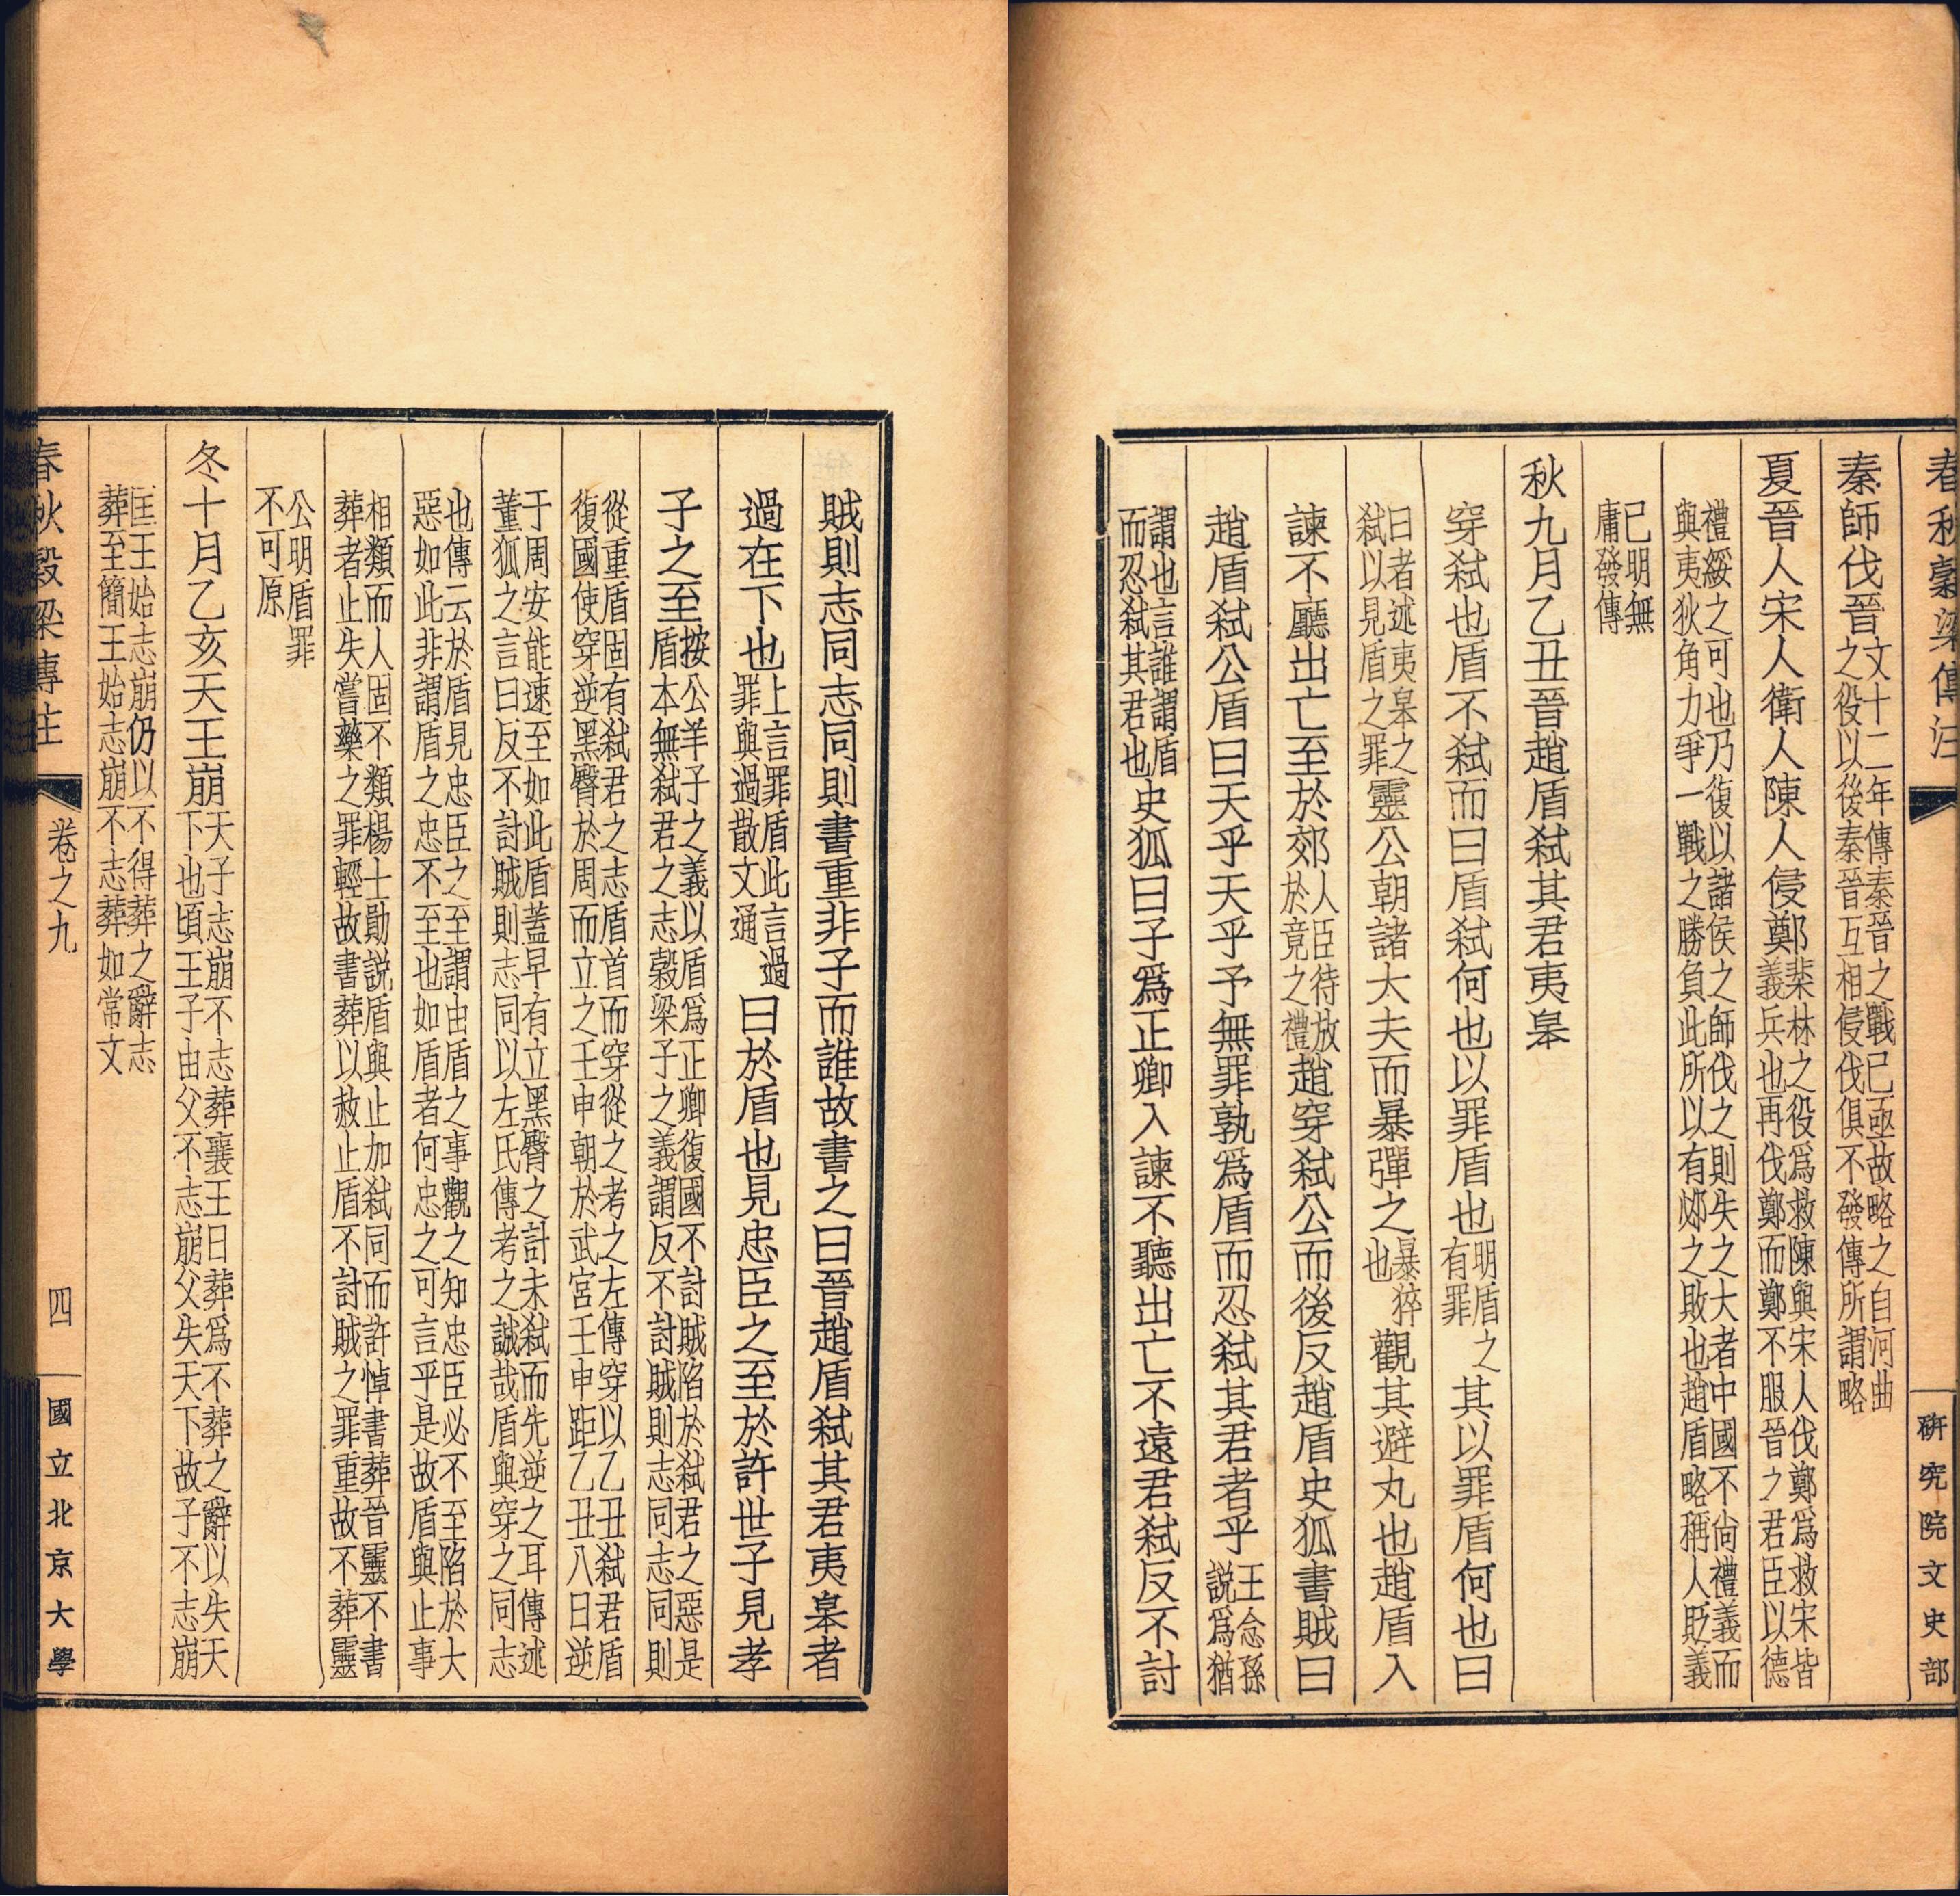 春秋穀梁傳注
硏究院文史部
秦師伐晉文十二年傳秦晉之戰已亟故略之自河曲之役以後秦晉互相侵伐俱不發傳所謂略
夏晉人宋人衛人陳人侵鄭棐林之役爲救陳與宋人伐鄭爲救宋皆義兵也再伐鄭而鄭不服晉之君臣以德
禮綏之可也乃復以諸侯之師伐之則失之大者中國不尙禮義而與夷狄角力爭一戰之勝負此所以有邲之敗也趙盾略稱人貶義
已明無庸發傳
秋九月乙丑晉趙盾弒其君夷皋
穿弒也盾不弒而曰盾弒何也以罪盾也明盾之有罪其以罪盾何也曰
曰者述夷皋之弒以見盾之罪靈公朝諸大夫而暴彈之暴猝也觀其避丸也趙盾入
諫不廳出亡至於郊人臣待放於竟之禮趙穿弒公而後反趙盾史狐書賊曰
趙盾弒公盾曰天乎天乎予無罪孰爲盾而忍弒其君者乎王念孫説爲猶
謂也言誰謂盾而忍弒其君也史狐曰子爲正卿入諫不聽出亡不遠君弒反不討
賊則志同志同則書重非子而誰故書之曰晉趙盾弒其君夷皋者
過在下也上言罪盾此言過罪與過散文通曰於盾也見忠臣之至於許世子見孝
子之至按公羊子之義以盾爲正卿復國不討賊陷於弒君之惡是盾本無弒君之志穀梁子之義謂反不討賊則志同志同則
從重盾固有弒君之志盾首而穿從之考之左傳穿以乙丑弒君盾復國使穿逆黑臀於周而立之壬申朝於武宮壬申距乙丑八日逆
于周安能速至如此盾蓋早有立黑臀之計未弒而先逆之耳傳述董狐之言曰反不討賊則志同以左氏傳考之誠哉盾與穿之同志
也傳云於盾見忠臣之至謂由盾之事觀之知忠臣必不至陷於大惡如此非謂盾之忠不至也如盾者何忠之可言乎是故盾與止事
相類而人固不類楊士勛説盾與止加弒同而許悼書葬晉靈不書葬者止失嘗藥之罪輕故書葬以赦止盾不討賊之罪重故不葬靈
公明盾罪不可原
冬十月乙亥天王崩天子志崩不志葬襄王曰葬爲不葬之辭以失天下也頃王子由父不志崩父失天下故子不志崩
匡王始志崩仍以不得葬之辭志葬至簡王始志崩不志葬如常文
春秋穀梁傳注
卷之九
四
國立北京大學